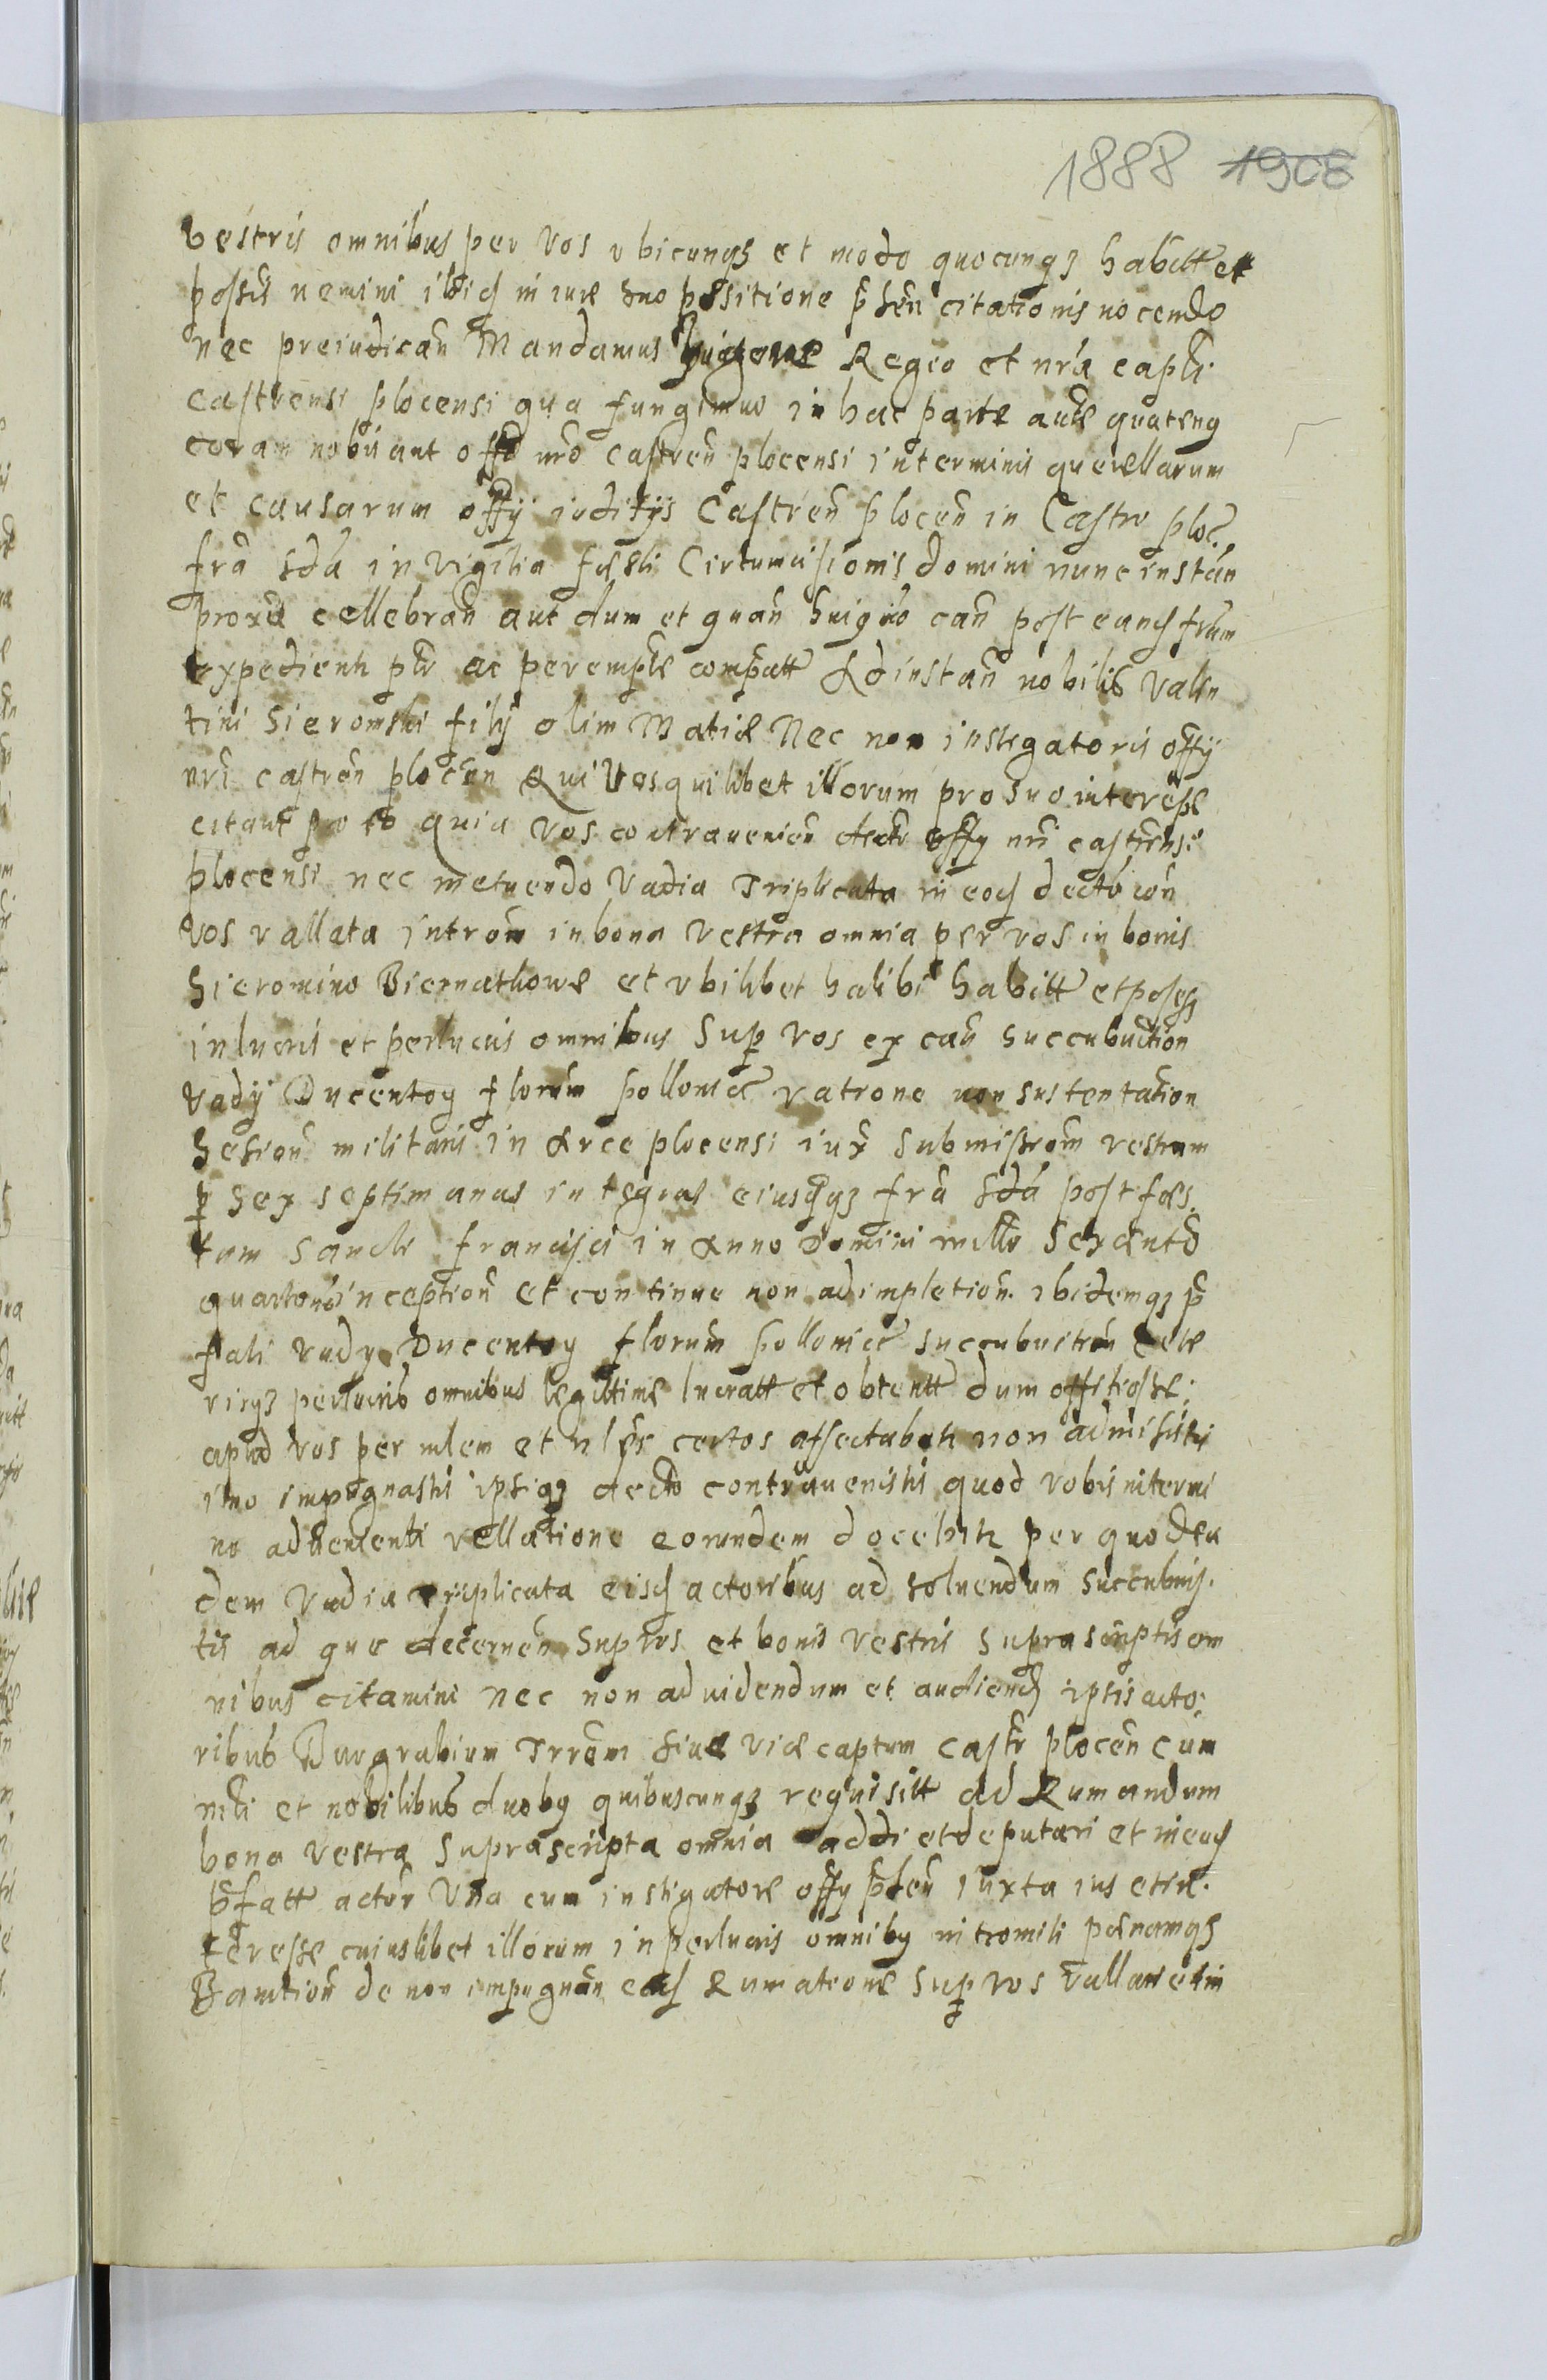 1888 1908
vestris omnibus per vos vbicunqȝ et modo quocunqȝ habitt et
possess nemini ibid in iure suo positione p̄sen citationis nocendo
nec preiudican Mandamus Regio et nra capti
castrensi plocensi qua fungimur in hac parte autte quateng
coram nobis aut offo nro castren plocensi in terminis querellarum
et causarum offy iuditys Castren plocen in Castro ploc
fra sda in vigilia festi Circumcisionis domini nunc instan
proxe cellebran aut dum et quan huigmo can post eand fram
expedientr ptr ac perempte compatt Ad instan nobilis valen
tini Sieromski fily olim Matiæ Nec non instigatoris offy
nri castren plocen Qui vos quilibet illorum pro suo interesse
citant pro eo quia vos contravenien decto offy nri castrensi
plocensi nec metuendo vadia Triplicata in eod decto con
vos vallata introm in bona vestra omnia per vos in bonis
Sieromino Biernathowe et vbilibet halibi habitt et possess
in lucris et perlucris omnibus Sup vos ex can succubuition
vady Ducentog florum pollonic ratione non sustentation
Sesion militaris in Arce plocensi iux submissiom vestram
p sex septimanas integras eiusdqȝ fra sda post fes
tum sancti francisci in Anno Domini mille Sexcento
quarto inception et continue non adimpletion ibidemqȝ p̄
fati vady Ducentog florum pollonic succubuition cete
risqȝ perlucris omnibus legittime lucratt et obtentt dum offitiose
apud vos per mlem et nles certos affectabatr non admisistis
imo impugnastis ipsiqȝ decto contravenistis quod vobis in termi
no adveniente rellatione eorundem docebitr per quod ea
dem vadia triplicata eisd actoribus ad soluendum succubuis
tis ad que decernen sup vos et bonis vestris suprascriptis om
nibus citamini nec non ad videndum et audiend ipsis acto
ribus Burgrabium Trrem siue vice captum castr plocen cum
mli et nobilibus duobg quibuscunqȝ requisitt ad Rumandum
bona vestra suprascripta omnia addi et deputari et in eod
p̄fatt actor Vna cum instigatore offy p̄sen iuxta ius et in
teresse cuiuslibet illorum in perlucris omnibg intromitti pænamqȝ
Banition de non impugnan ead Rumatione Sup vos vallari et in